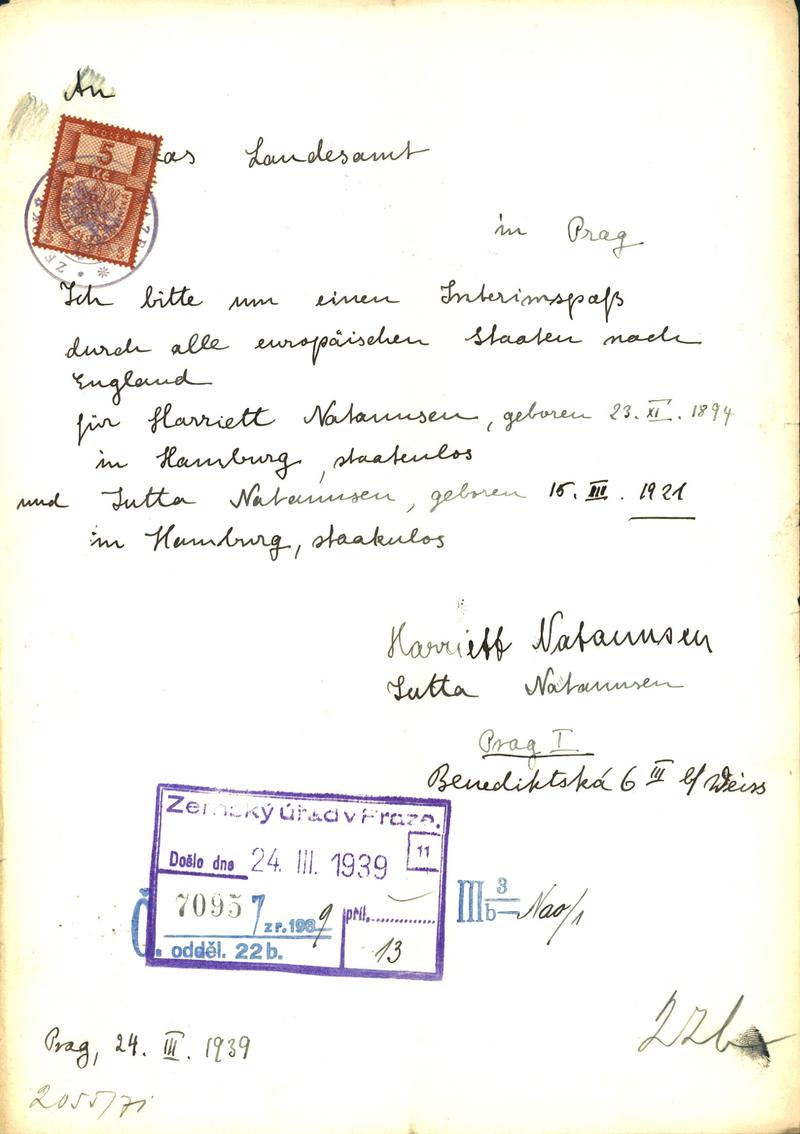 An
das Landesamt
KOLEK
5
Kč
in Prag
Ich bitte um einen Interimspaß
durch alle europäischen Staaten nach
England
für Harriett Natannsen, geboren 23. XI. 1894
in Hamburg, staatenlos
und Jutta Natannsen, geboren 15. III. 1921
in Hamburg, staatenlos
Harriett Natannsen
Jutta Natannsen
Prag I
Benediktská 6 III b/ Weiss
Zemský úřad v Praze.
Došlo dne 24. III. 1939
11
Č. 70957 z r. 1939
příl.
13
odděl. 22b.
III 3 b Nao/1
22b
Prag, 24. III. 1939
2055/71